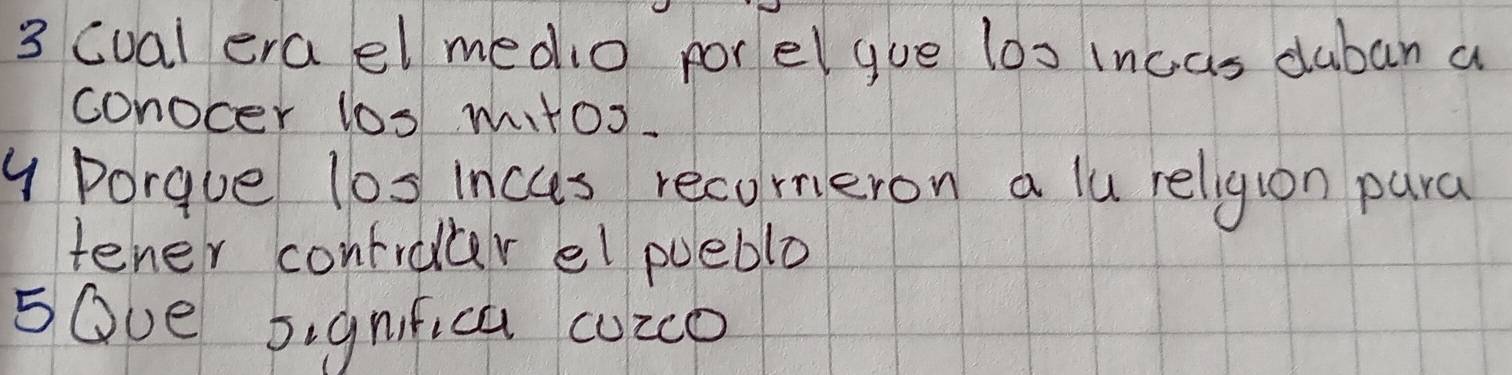 3 Cual era el medio por el que los incas daban a
conocer los mitos.
4 Porque los incas recurrieron a la religion para
tener controlar el pueblo
5 Que significa cuzco